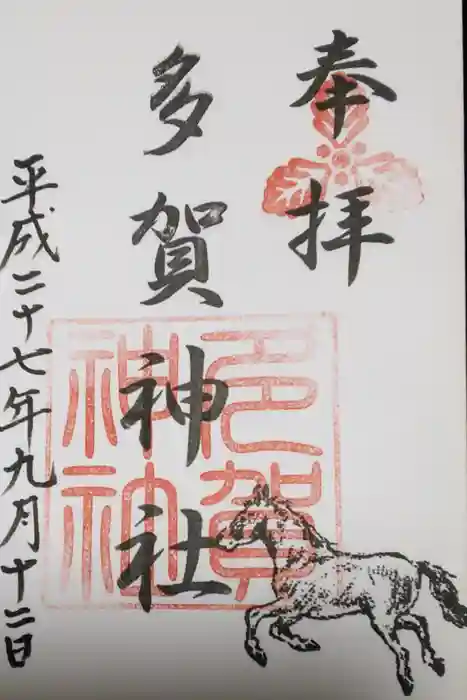 奉拝
多賀神社
平成二十七年九月十二日
多賀神社